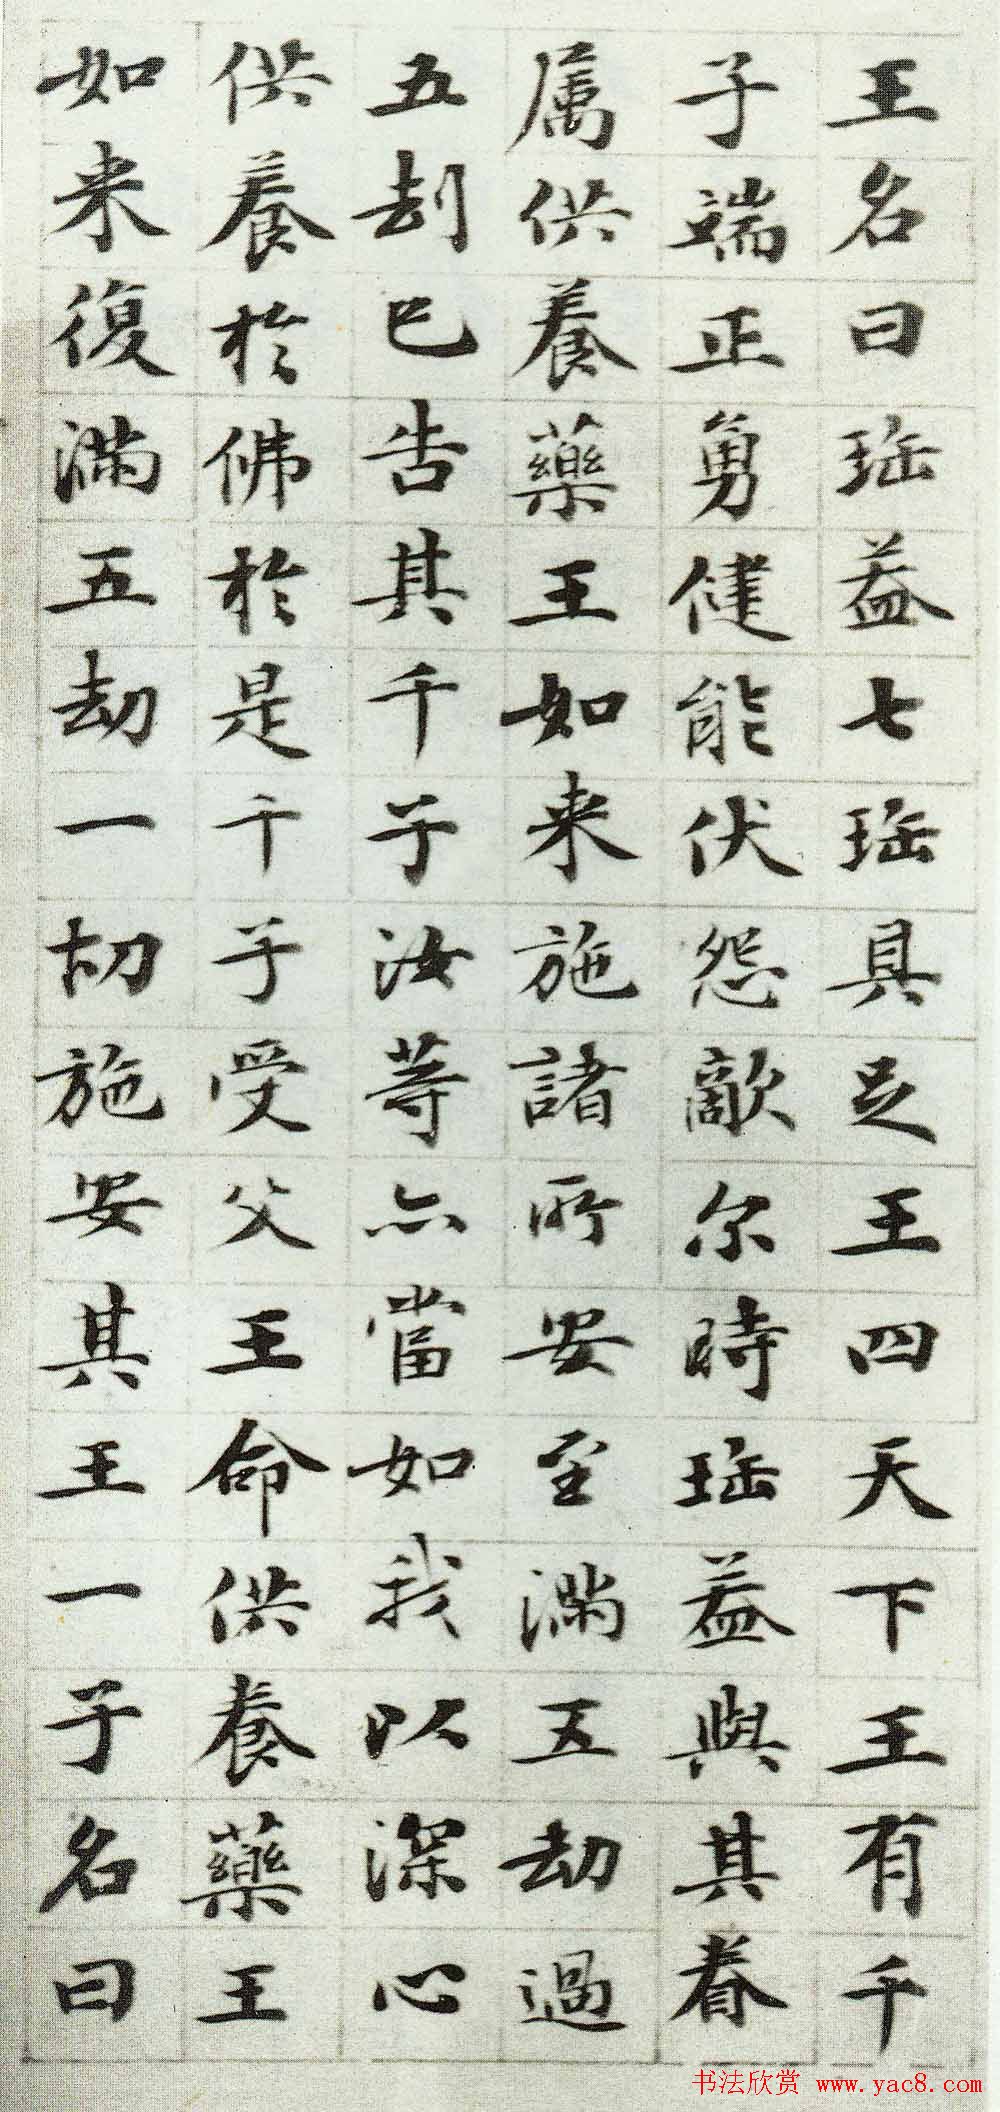 王名曰珤盖七珤具足王四天下王有千
子端正勇健能伏怨敵尔時珤盖與其眷
属供養藥王如来施諸所安至滿五劫過
五刧已告其千子汝等亦當如我以深心
供養於佛於是千子受父王命供養藥王
如来復滿五劫一切施安其王一子名曰
书法欣赏 www.yac8.com